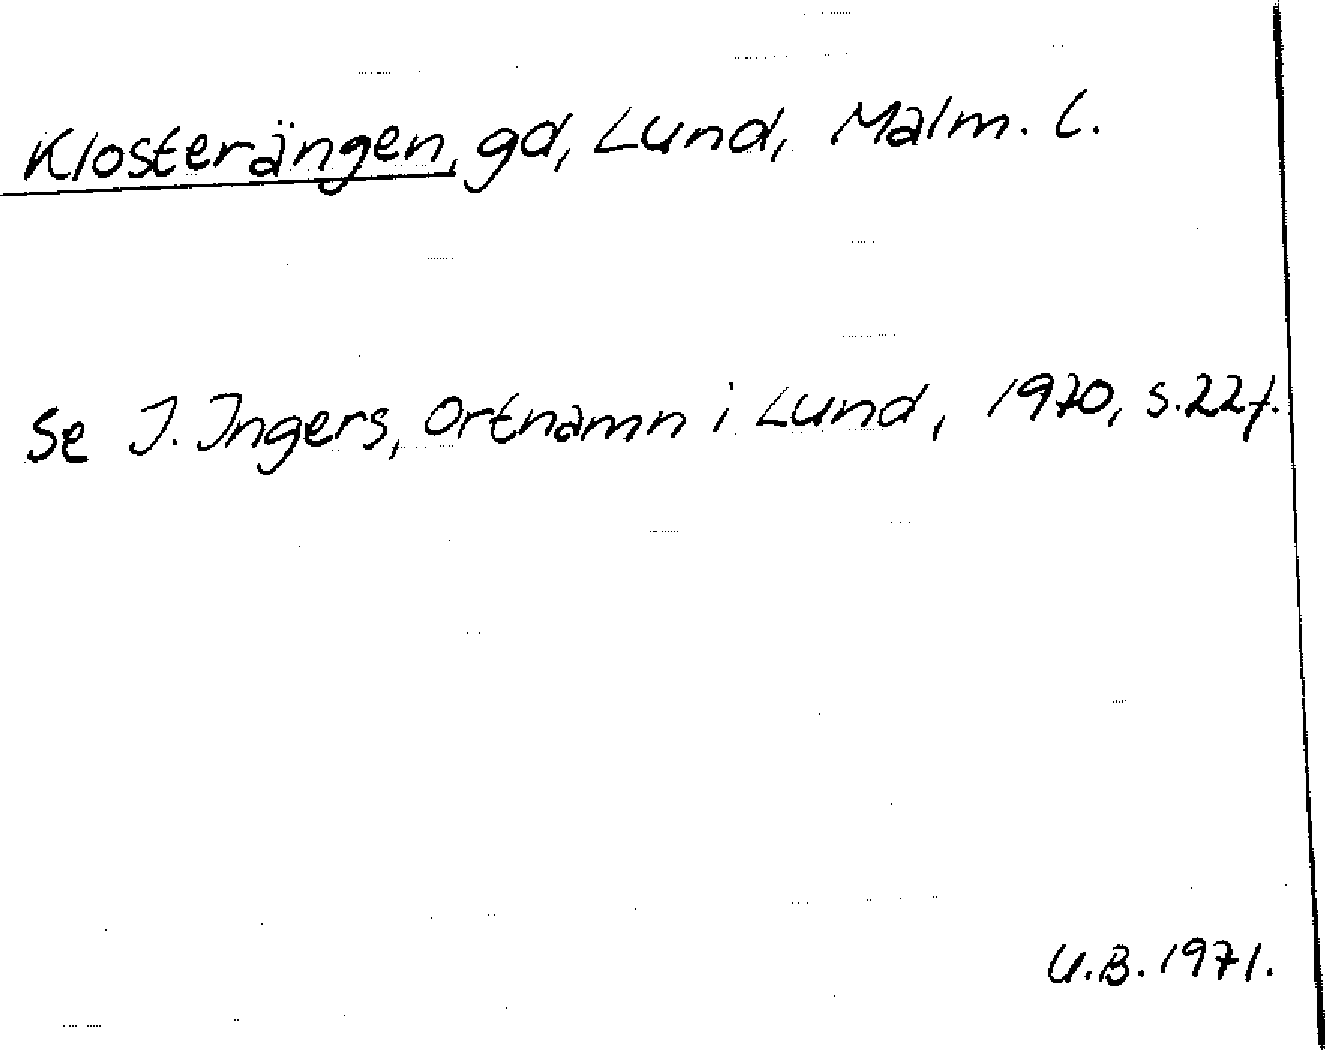 Klosterängen, gd, Lund, Malm. l.
Se I. Ingers, Ortnamn i Lund, 1970, s. 22f.
U.B. 1971.